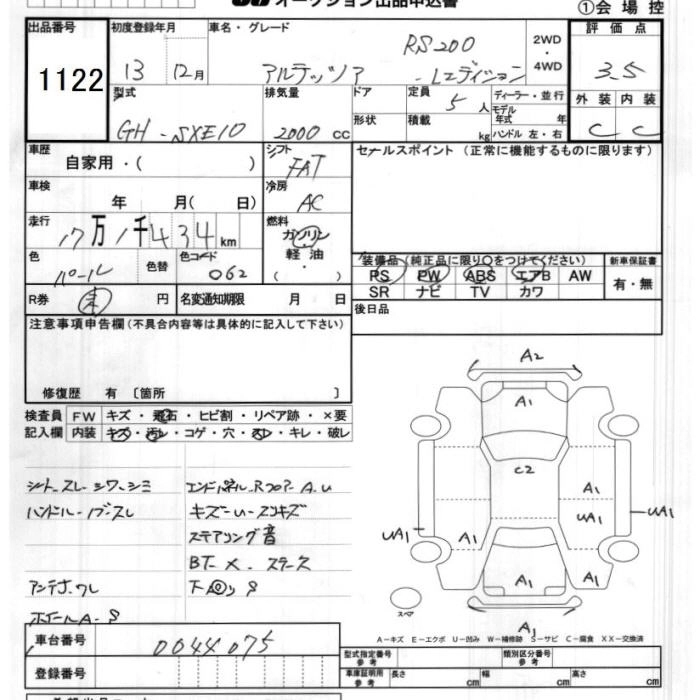 オークション出品申込書
①会場控
出品番号 初度登録年月 車名・グレード 評価点
1122 13 12月 アルテッツァ RS200 Lエディション 2WD・4WD 3.5
型式 排気量 ドア 定員 ディーラー・並行 外装 内装
GH-SXE10 2000cc 5人 モデル年式 年 C C
形状 積載 kg ハンドル 左・右
車歴 シフト セールスポイント (正常に機能するものに限ります)
自家用・( ) FAT
車検 冷房
年 月( 日) AC
走行 燃料
17万1千434km ガソリン
色 色替 色コード 軽油・
パール 062 ( )
装備品(純正品に限り○をつけてください) 新車保証書
PS PW ABS エアB AW 有・無
SR ナビ TV カワ
R券 未 円 名変通知期限 月 日
後日品
注意事項申告欄(不具合内容等は具体的に記入して下さい)
修復歴 有 〔箇所 〕
検査員 FW キズ・飛石・ヒビ割・リペア跡・×要
記入欄 内装 キズ・汚レ・コゲ・穴・スレ・キレ・破レ
シートスレ・シワ・シミ
ハンドル・ノブスレ
アンテナワレ
ホイールA・S
エンドパネル・Rフロアー A.U
キズ・U・スリキズ
ステアリング音
BT ×
下回リS
A2
A1
C2
A1
UA1
UA1
UA1
A1
A1
A1
A1
スペア
A-キズ E-エクボ U-凹み W-補修跡 S-サビ C-腐食 XX-交換済
車台番号 0044075
登録番号
型式指定番号 参考 類別区分番号 参考
車庫証明用 参考 長さ cm 幅 cm 高さ cm